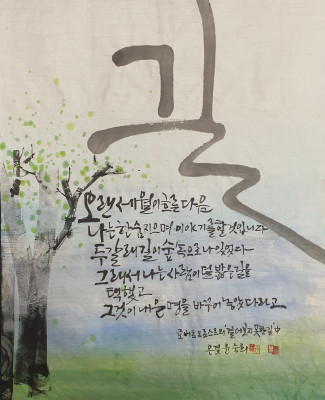 길
오랜 세월이 흐른 다음
나는 한숨지으며 이야기를 할 것입니다
두 갈래 길이 숲속으로 나 있었다
그래서 나는 사람이 덜 밟은 길을
택했고
그것이 내 운명을 바꾸어 놓았다라고
로버트 프로스트의 '걸어보지 못한 길' 中